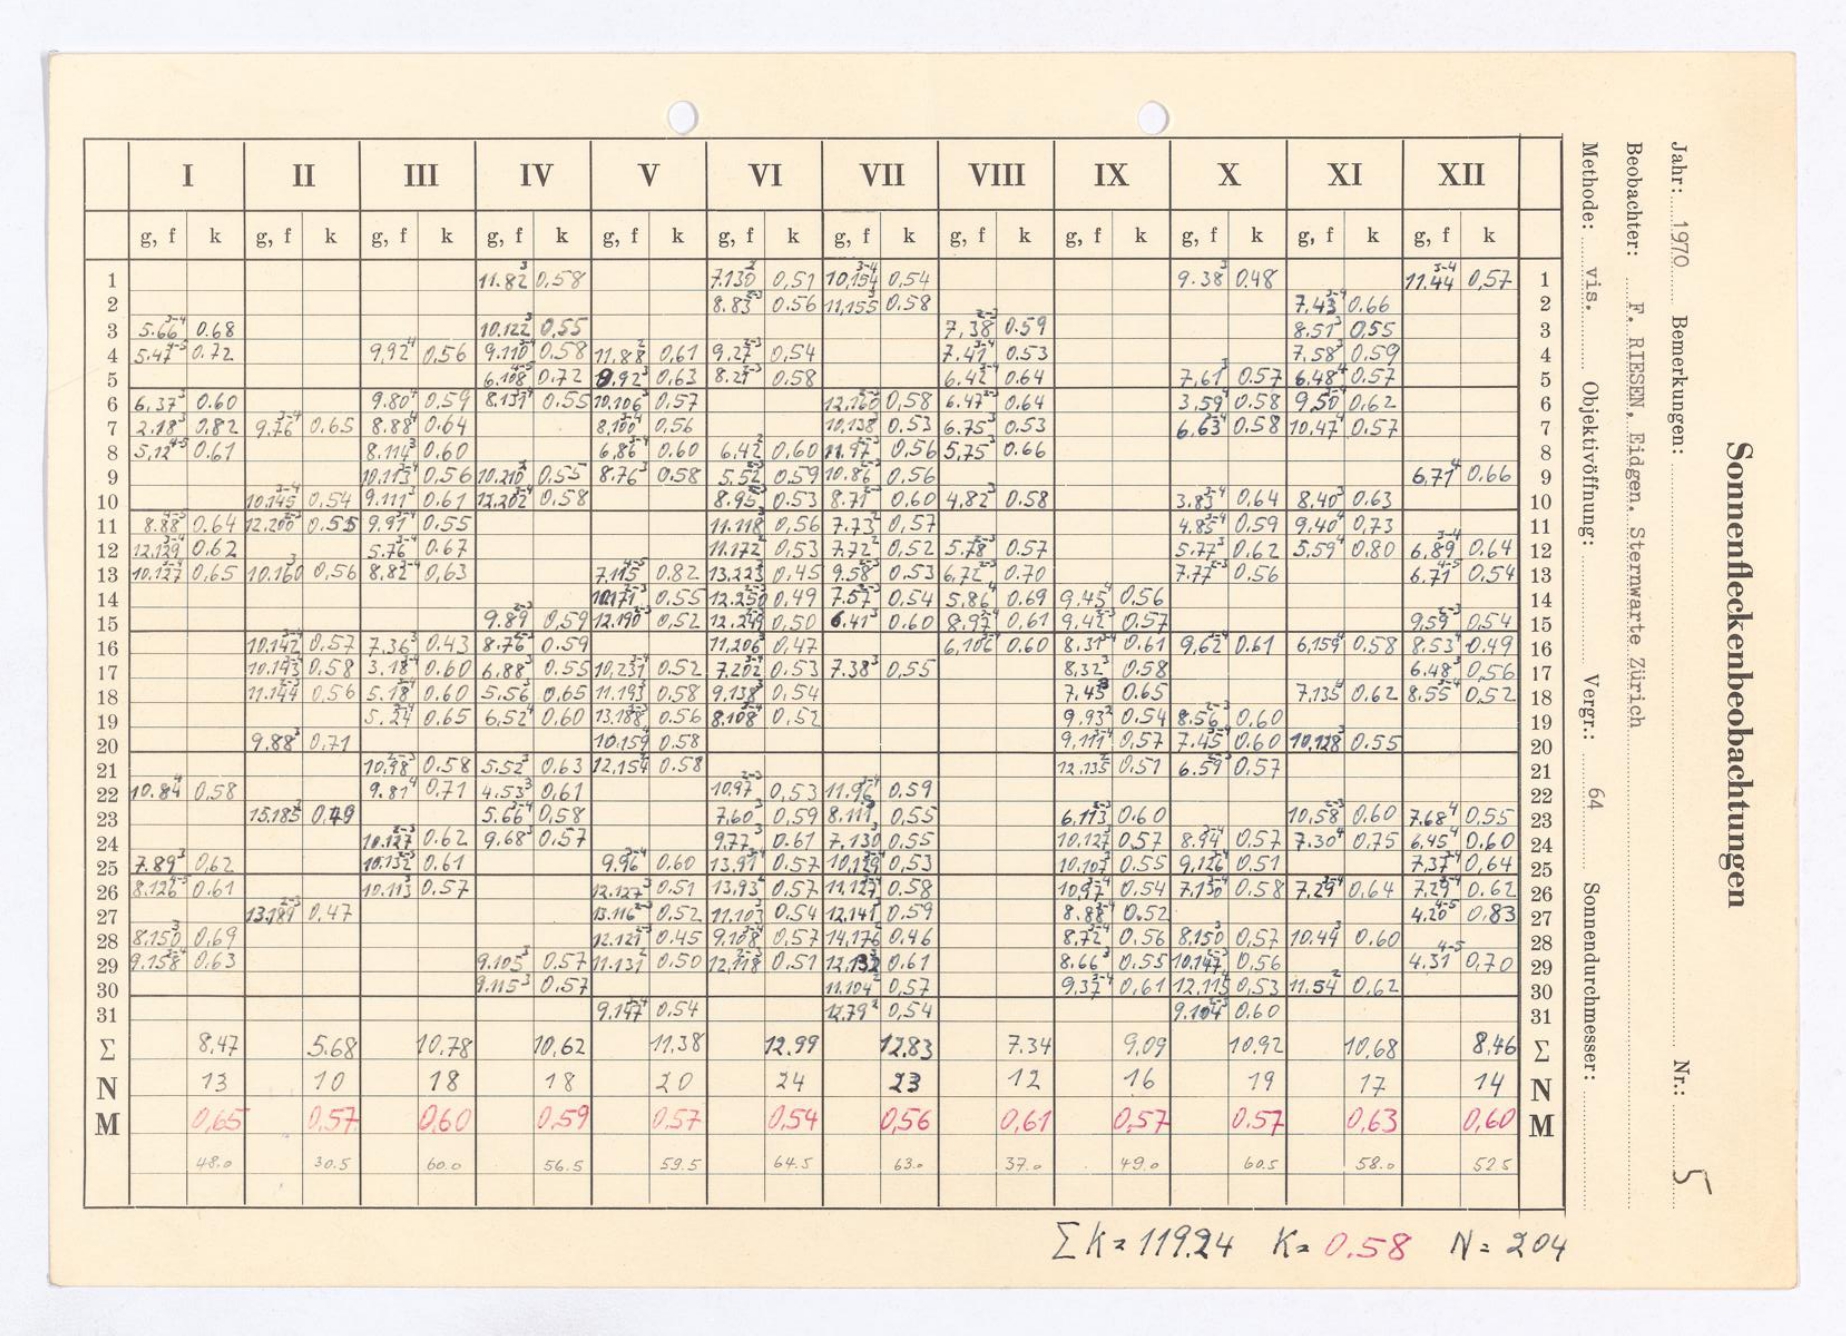 Sonnenfleckenbeobachtungen
Jahr: 1970 Bemerkungen: Nr.: 5
Beobachter: F. RIESEN, Eidgen. Sternwarte Zürich
Methode: vis. Objektivöffnung: Vergr.: 64 Sonnendurchmesser:
I II III IV V VI VII VIII IX X XI XII
g, f k g, f k g, f k g, f k g, f k g, f k g, f k g, f k g, f k g, f k g, f k g, f k
1 11.82 0,58 7.130 0,51 10,154 0,54 9.38 0.48 11.44 0,57 1
2 8.83 0.56 11,155 0.58 7.43 0.66 2
3 5.66 0.68 10.122 0,55 7,38 0.59 8.51 0.55 3
4 5.47 0.72 9,92 0,56 9.110 0.58 11.88 0,61 9.27 0,54 7.41 0.53 7.58 0.59 4
5 6.108 0.72 9.92 0.63 8.21 0.58 6.42 0.64 7.61 0.57 6.48 0.57 5
6 6.37 0.60 9.80 0.59 8.131 0.55 10.106 0,57 12.160 0,58 6.47 0.64 3.59 0.58 9.50 0.62 6
7 2.18 0.82 9.76 0.65 8.88 0.64 8,100 0.56 10,138 0.53 6.75 0.53 6.63 0.58 10.47 0.57 7
8 5,12 0.61 8.114 0.60 6,86 0.60 6.42 0,60 11.97 0,56 5,75 0.66 8
9 10.113 0,56 10.210 0.55 8.76 0.58 5.52 0.59 10.86 0.56 6,71 0.66 9
10 10.145 0,54 9.111 0.61 13,202 0.58 8.95 0.53 8.71 0,60 4,82 0.58 3.83 0.64 8.40 0.63 10
11 8.88 0.64 12.200 0.55 9,91 0.55 11.118 0,56 7.73 0,57 4.85 0.59 9.40 0.73 11
12 12.129 0.62 5.76 0.67 11.172 0,53 7.72 0,52 5.78 0.57 5.77 0.62 5.59 0.80 6,89 0.64 12
13 10.127 0,65 10.160 0,56 8.82 0,63 7.115 0.82 13.223 0,45 9.58 0.53 6,72 0.70 7.77 0.56 6.71 0.54 13
14 10.171 0.55 12.250 0.49 7.57 0.54 5.86 0.69 9.45 0.56 14
15 9.89 0,59 12.190 0,52 12.249 0.50 6.41 0.60 8.97 0.61 9,42 0.57 9.59 0,54 15
16 10.142 0,57 7.36 0.43 8.76 0.59 11,206 0,47 6,106 0.60 8.31 0.61 9,62 0.61 6,159 0.58 8.53 0.49 16
17 10.193 0.58 3.18 0.60 6.88 0.55 10,231 0.52 7.202 0.53 7.38 0,55 8,32 0.58 6.48 0,56 17
18 11.144 0,56 5.18 0.60 5.56 0,65 11.193 0.58 9.138 0.54 7.45 0.65 7.135 0.62 8.55 0.52 18
19 5.24 0.65 6,52 0.60 13.188 0.56 8.108 0,52 9.93 0.54 8.56 0.60 19
20 9.88 0,71 10.159 0.58 9,111 0,57 7.45 0.60 10,128 0.55 20
21 10.98 0.58 5.52 0.63 12,154 0.58 12.135 0.51 6.59 0.57 21
22 10.84 0,58 9.81 0.71 4.53 0,61 10.97 0,53 11.96 0.59 22
23 15.185 0.49 5.66 0,58 7,60 0,59 8.111 0,55 6,113 0.60 10,58 0.60 7.68 0.55 23
24 10.127 0.62 9.68 0.57 9.77 0.61 7,130 0.55 10.127 0.57 8.94 0.57 7.30 0,75 6.45 0.60 24
25 7.89 0,62 10.132 0.61 9.96 0.60 13.91 0.57 10,129 0,53 10,107 0.55 9,126 0.51 7,37 0,64 25
26 8.126 0.61 10.113 0.57 12.127 0.51 13.93 0.57 11,127 0.58 10,97 0.54 7.130 0.58 7.29 0,64 7.29 0.62 26
27 13.189 0.47 13.116 0,52 11.103 0.54 12,141 0.59 8.88 0.52 4.20 0,83 27
28 8.150 0,69 12.121 0.45 9.108 0,57 14,176 0.46 8,72 0.56 8.150 0,57 10.44 0.60 28
29 9.158 0.63 9.105 0.57 11.131 0.50 12,118 0.51 12,132 0.61 8.66 0.55 10.147 0,56 4.31 0,70 29
30 9.115 0.57 11.104 0,57 9.37 0,61 12.115 0,53 11.54 0,62 30
31 9.147 0.54 12.79 0,54 9.104 0.60 31
Σ 8,47 5.68 10.78 10,62 11.38 12.99 12.83 7.34 9,09 10.92 10,68 8.46 Σ
N 13 10 18 18 20 24 23 12 16 19 17 14 N
M 0,65 0,57 0,60 0,59 0,57 0,54 0,56 0,61 0,57 0.57 0,63 0,60 M
48.0 30.5 60.0 56.5 59.5 64.5 63.0 37.0 49.0 60.5 58.0 52.5
Σ k = 119.24 K = 0.58 N = 204